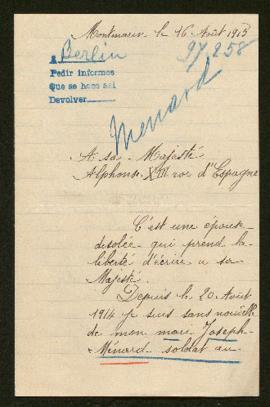 Montmarin le 16 Août 1915
a Berlin
97258
Pedir informes
Que se hace así
Devolver
Menard
A sa Majesté
Alphonse XIII roi d'Espagne
C'est une épouse
désolée qui prend la
liberté d'écrire a sa
Majesté.
Depuis le 20 Août
1914 je suis sans nouvelle
de mon mari Joseph
Ménard soldat au